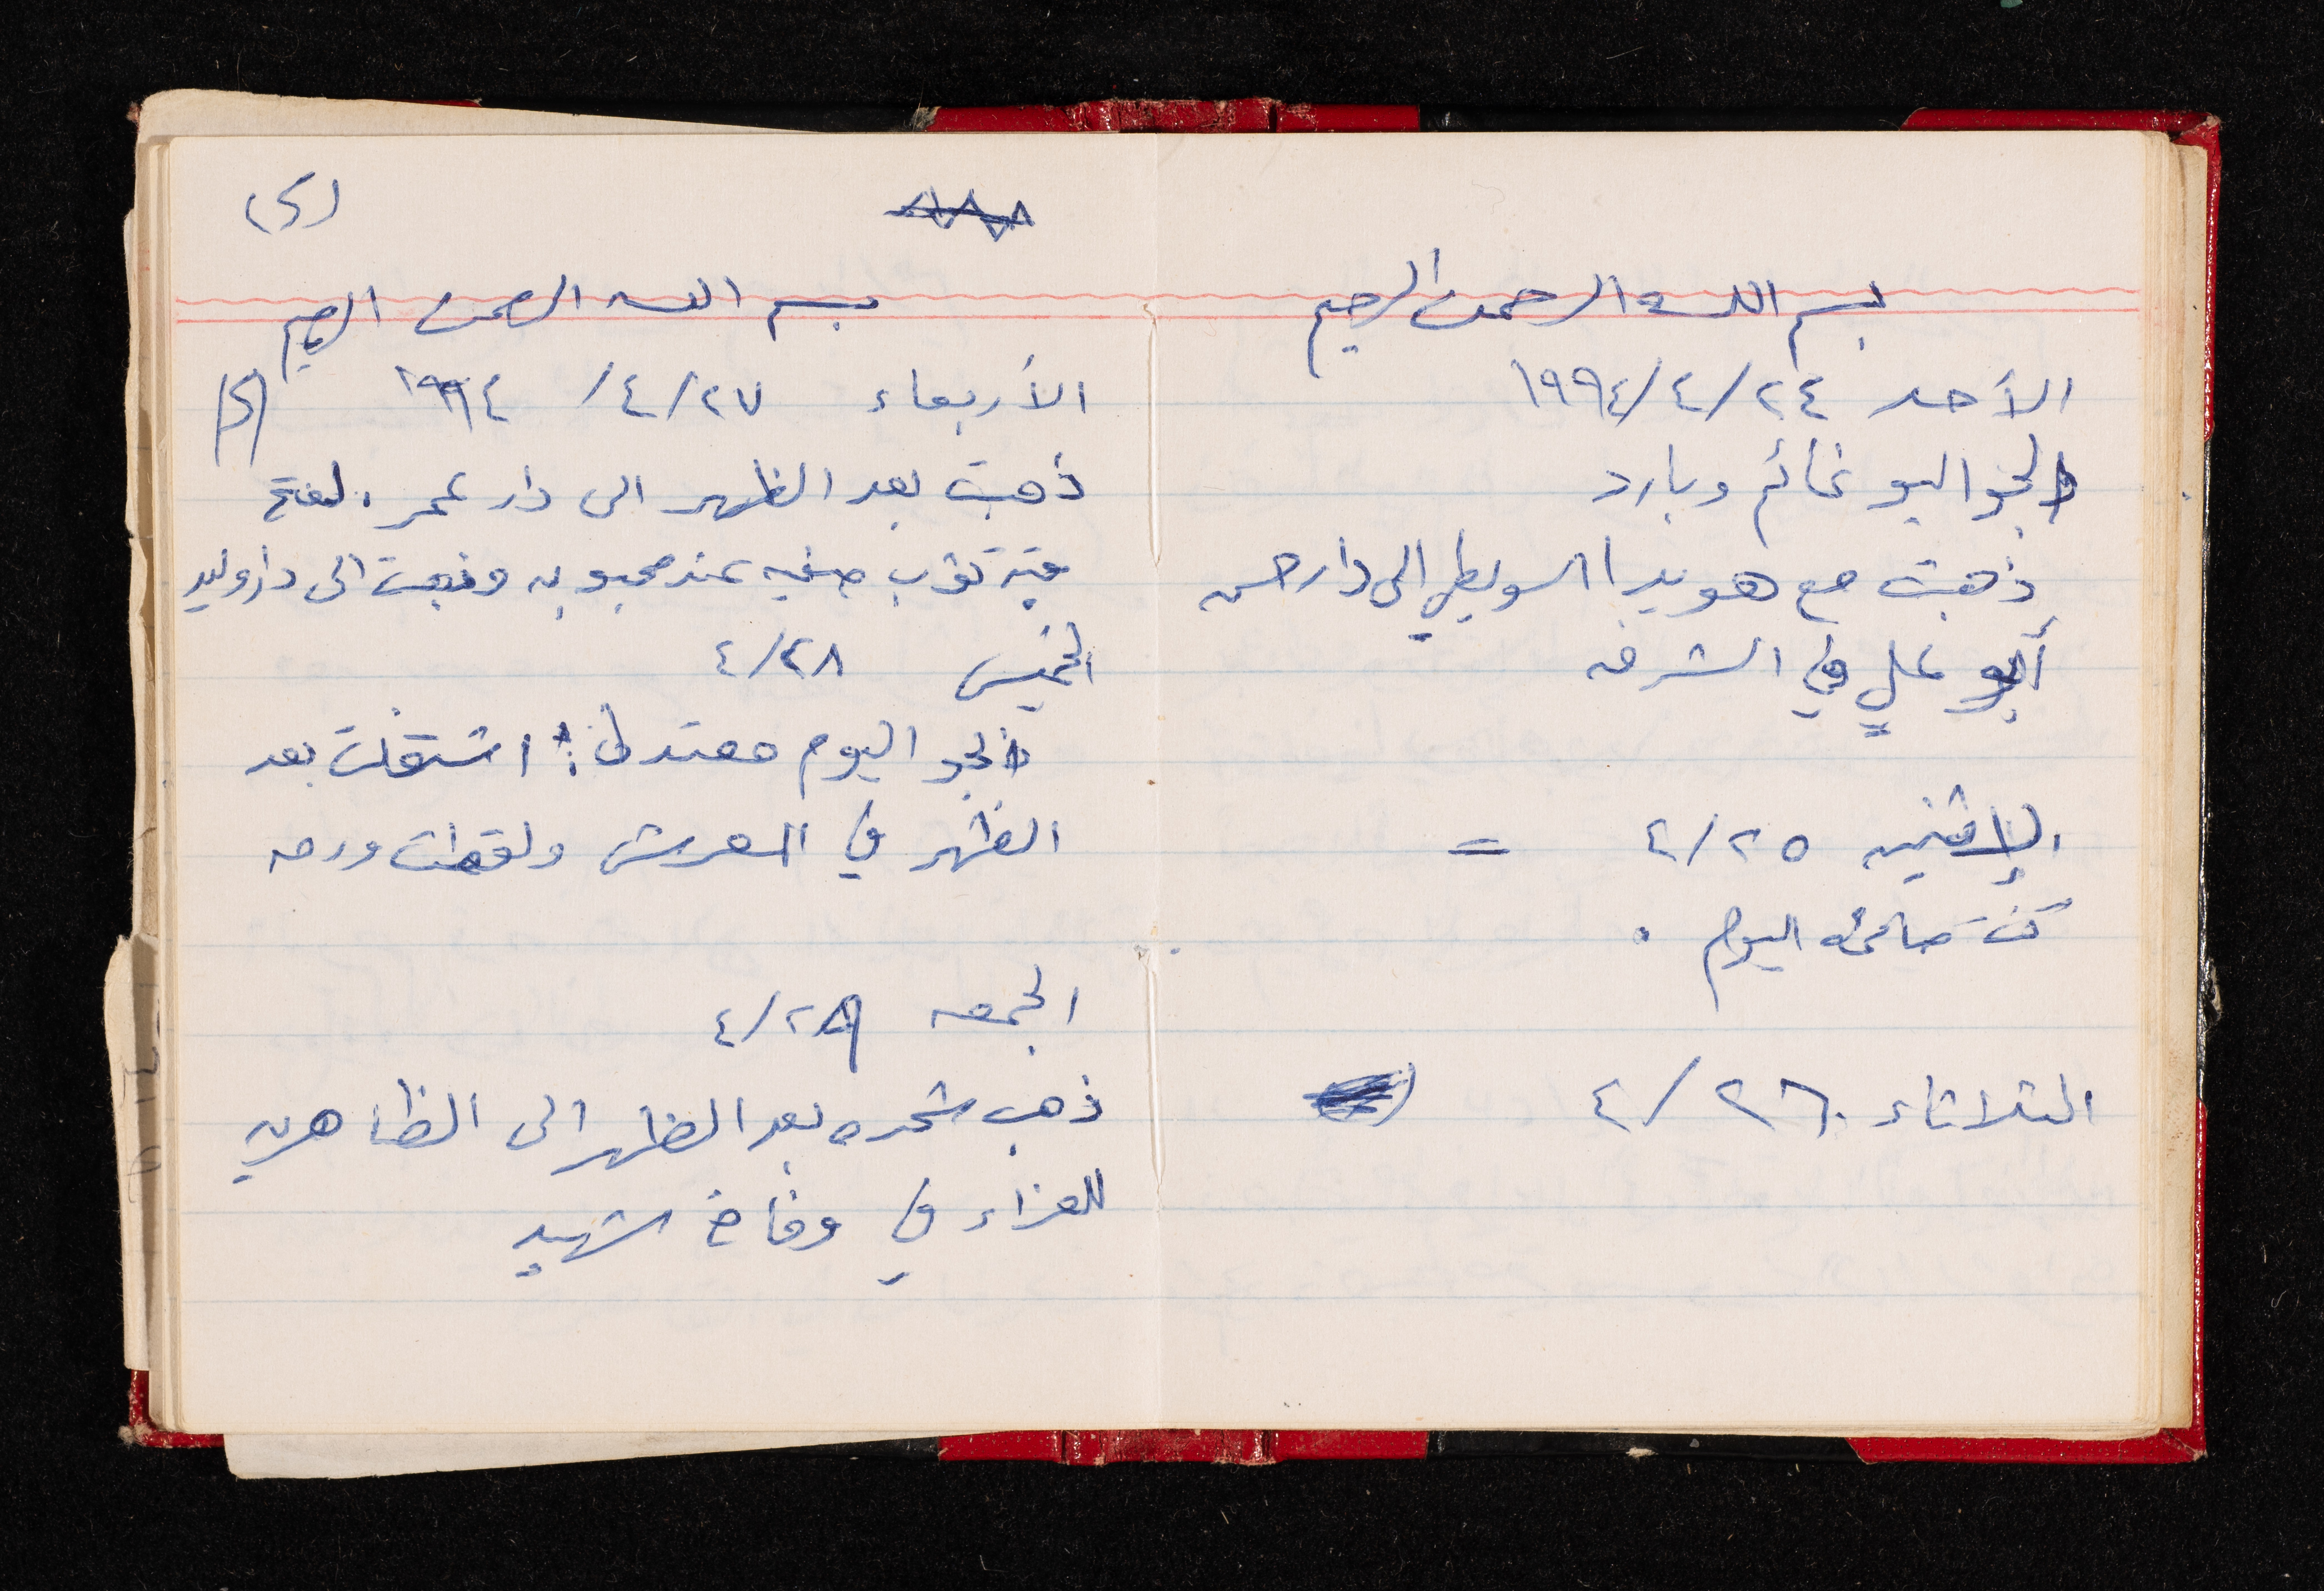 بسم الله الرحمن الرحيم
الأحد ٢٤/٤/١٩٩٤
الجو اليو غائم وبارد
ذهبت مع هويدا السويطي الى دار حسن
أبو علي في الشرفه
الإثنين ٢٥/٤ =
كنت صائمه اليوم .
الثلاثاء ٢٦/٤
(٢)
بسم الله الرحمن الرحيم
الأربعاء ٢٧/٤/١٩٩٤ (٢)
ذهبت بعد الظهر الى دار عمر.
ثوب صفيه عند محبوبه وذهبت الى دار وليد
الخميس ٢٨/٤
الجو اليوم معتدل: اشتغلت بعد
الظهر في العريش ولقطت ورق
الجمعه ٢٩/٤
ذهب شحده بعد الظهر الى الظاهريه
للعزاء في وفاة شهيد